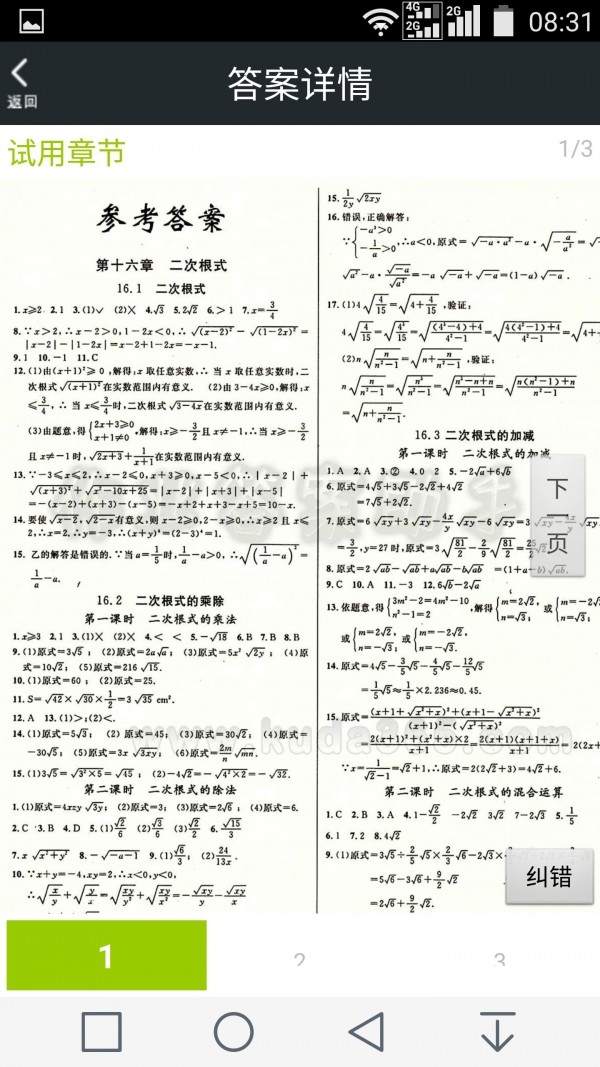 4G 2G 2G 08:31
返回
答案详情
试用章节
1/3
参考答案
第十六章 二次根式
16.1 二次根式
1.x≥2 2.1 3.(1)√ (2)× 4.√3 5.2√2 6.>1 7.x=3/4
8.∵x>2,∴x-2>0,1-2x<0,∴√(x-2)²-√(1-2x)²=
|x-2|-|1-2x|=x-2+1-2x=-x-1.
9.1 10.-1 11.C
12.(1)由(x+1)²≥0,解得:x取任意实数,∴当x取任意实数时,二
次根式√(x+1)²在实数范围内有意义. (2)由3-4x≥0,解得:x
≤3/4,∴当x≤3/4时,二次根式√3-4x在实数范围内有意义.
(3)由题意,得{2x+3≥0 x+1≠0,解得:x≥-3/2且x≠-1,∴当x≥-3/2
且x≠-1时,√2x+3+1/(x+1)在实数范围内有意义.
13.∵-3≤x≤2,∴x-2≤0,x+3≥0,x-5<0,∴|x-2|+
√(x+3)²+√x²-10x+25=|x-2|+|x+3|+|x-5|
=-(x-2)+(x+3)-(x-5)=-x+2+x+3-x+5=10-x.
14.要使√x-2,√2-x有意义,则x-2≥0,2-x≥0,∴x≥2且x≤
2,∴x=2.∴y=-3,∴(x+y)⁴=(2-3)⁴=1.
15.乙的解答是错误的.∵当a=1/5时,1/a-a>0,∴√(1/a-a)²=
1/a-a.
16.2 二次根式的乘除
第一课时 二次根式的乘法
1.x≥3 2.1 3.(1)× (2)× 4.< < 5.-√18 6.B 7.B 8.B
9.(1)原式=3√5; (2)原式=2a√a; (3)原式=5x²√2y; (4)原
式=10√2; (5)原式=216√15.
10.(1)原式=60; (2)原式=25.
11.S=√42×√30×1/2=3√35 cm².
12.A 13.(1)>;(2)<.
14.(1)原式=5√3; (2)原式=45; (3)原式=30√2; (4)原式=
-30√5; (5)原式=3x√3xy; (6)原式=2m/n√mn.
15.(1)3√5=√3²×5=√45; (2)-4√2=-√4²×2=-√32.
第二课时 二次根式的除法
1.(1)原式=4xzy√3y; (2)原式=3; (3)原式=2√6; (4)原式=6.
2.C 3.B 4.D 5.(1)√2/6 (2)√3/6 (3)√2/2 6.√15/3
7.x√x²+y² 8.-√-a-1 9.(1)√6/3; (2)24/13x.
10.∵x+y=-4,xy=2,∴x<0,y<0,
∴√x/y+√y/x=√xy/y²+√xy/x²=-√xy/y-√xy/x
15.1/2y√2xy
16.错误,正确解答:
∵{-a³>0 -1/a>0,∴a<0,原式=√-a·a²-a·√-a/a²=√
√a²·√-a-a·√-a/√a²=-a√-a+√-a=(1-a)√-a.
17.(1)4√4/15=√4+4/15,验证:
4√4/15=√4³/15=√(4³-4)+4/4²-1=√4(4²-1)+4/4²-1=√4+
(2)n√n/n²-1=√n+n/n²-1,验证:
n√n/n²-1=√n³/n²-1=√n³-n+n/n²-1=√n(n²-1)+n/n²-1
=√n+n/n²-1.
16.3 二次根式的加减
第一课时 二次根式的加减
1.A 2.A 3.② 4.0 2 5.-2√a+6√b
6.原式=4√5+3√5-2√2+4√2
=7√5+2√2.
7.原式=6√xy+3√xy-4x/y√xy-6√xy=3√xy-4x/y√xy
=3/2,y=27时,原式=3√81/2-2/9√81/2=25/2√2
8.原式=2√ab-√ab+a√ab-b√ab =(1+a-b)√ab.
9.C 10.A 11.-3 12.6√b-2√a
13.依题意,得{3m²-2=4m²-10 n²-1=2,解得{m=2√2, n=√3; 或{m=-2√ n=√3;
或{m=2√2, n=-√3; 或{m=-2√2, n=-√3.
14.原式=4√5-3/5√5-4/5√5-12/5√5
=1/5√5≈1/5×2.236≈0.45.
15.原式=(x+1+√x²+x)²+(x+1-√x²+x)²/(x+1)²-(√x²+x)²
=2(x+1)²+(x²+x)×2/x+1=2(x+1)(x+1+x)/x+1=2(2x+
∵x=1/√2-1=√2+1,∴原式=2(2√2+3)=4√2+6.
第二课时 二次根式的混合运算
1.C 2.B 3.A 4.1-√2/2 -2√2 3√2 7-2√3 5.1/5
6.1 7.2 8.4√2
9.(1)原式=3√5÷2/5√5×2/3√6-2√3×
=5√6-3√6+9/2√2
=2√6+9/2√2.
下一页
纠错
1 2 3